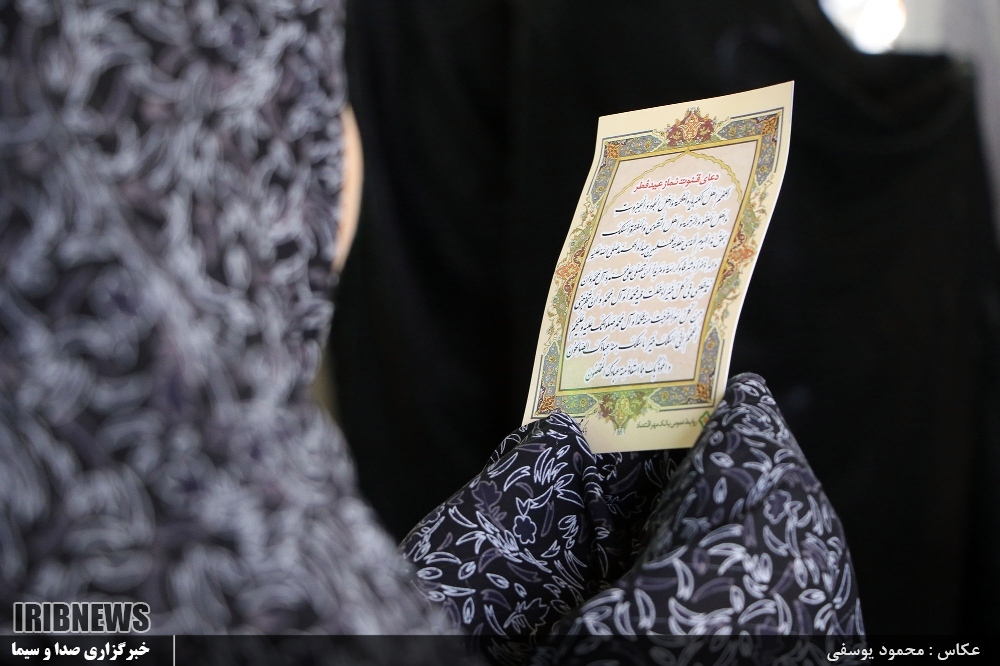 دعای قنوت نماز عید فطر
اللهم اهل الکبریاء والعظمة واهل الجود والجبروت
واهل العفو والرحمة واهل التقوی والمغفرة اسئلک
بحق هذا الیوم الذی جعلته للمسلمین عیدا ولمحمد صلی الله علیه
ان تصلی علی محمد وآل محمد وان
فی کل خیر ادخلت فیه محمدا وآل محمد وان تخرجنی
من کل سوء اخرجت منه محمدا وآل محمد صلواتک علیه وعلیهم
اللهم انی اسئلک خیر ما سئلک منه عبادک الصالحون
واعوذ بک مما استعاذ منه عبادک المخلصون
روابط عمومی بانک مهر اقتصاد
IRIBNEWS
خبرگزاری صدا و سیما
عکاس : محمود یوسفی